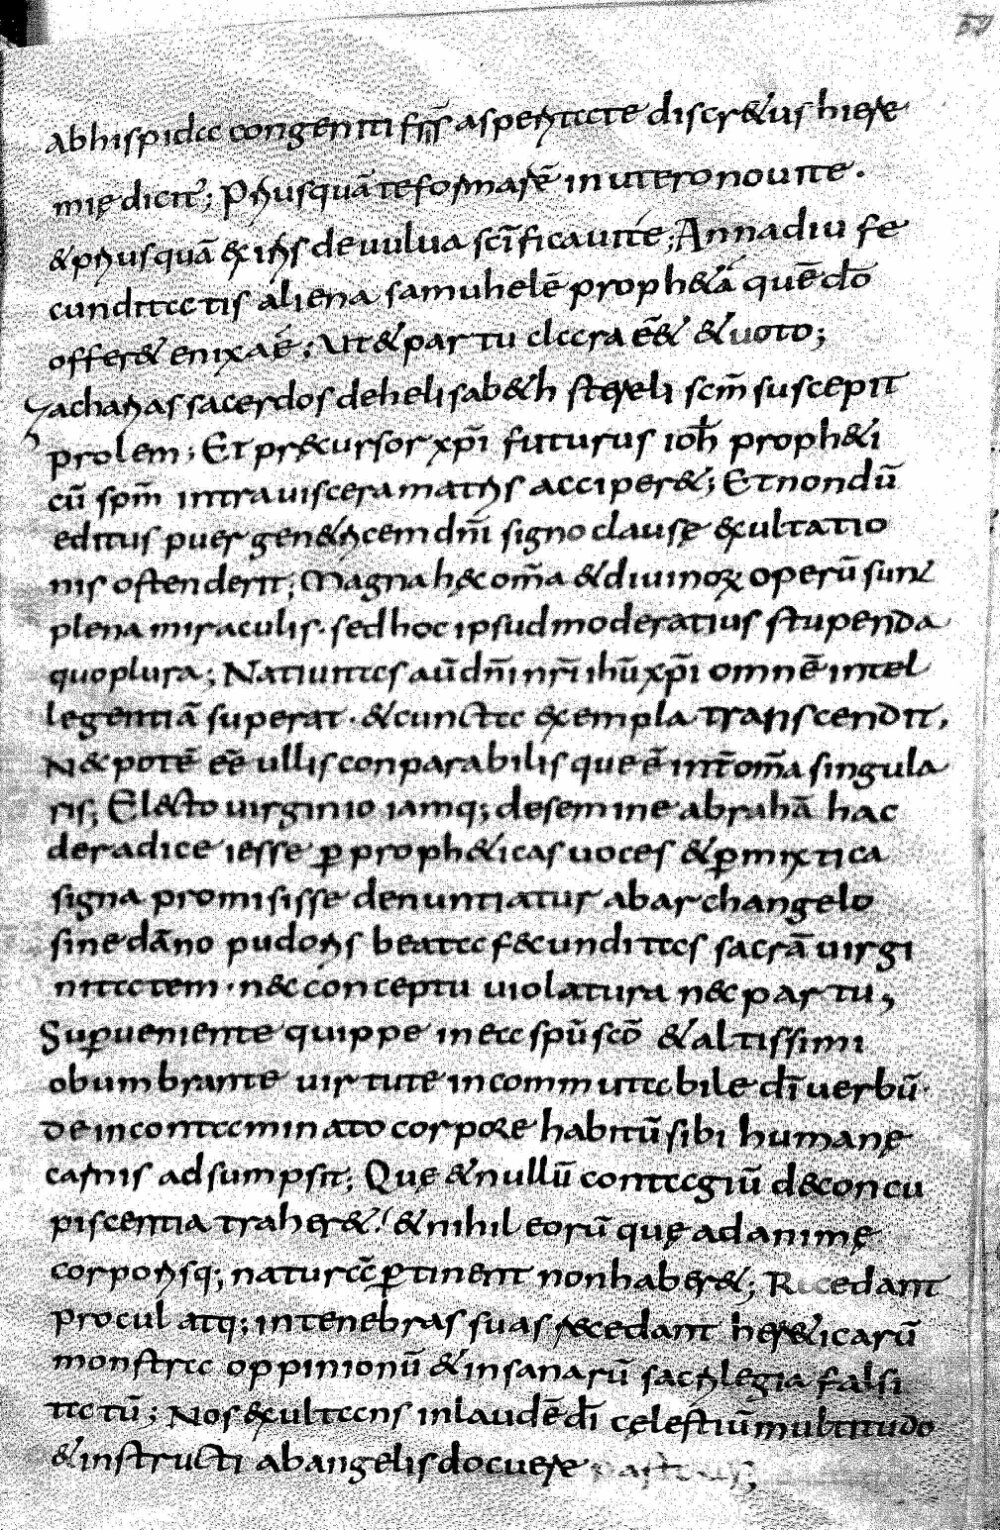 abhispida congeniti frīs asperitate discretus hiere
mię dicit̄; Priusquā te formarē in utero noui te.
& priusquā exires de uulua scīficaui te; Anna diu fe
cunditatis aliena samuhelē proph&ā quē dō
offerr& enixa ē; Ut & partu clara ēē& & uoto;
Zacharias sacerdos de helisab&h stereli scm̄ suscepit
prolem; Et pręcursor xpī futurus ioh̄ proph&i
cū spm̄ intra uiscera matris acciper&; Et nondū
editus puer gen&ricem dnī signo clausę exultatio
nis ostenderit; Magna hęc om̄a & diuinoꝝ operū sunt
plena miraculis. sed hoc ipsud moderatius stupenda
quo plura; Natiuitas aū dnī nrī ihū xpī omnē intel
legentiā superat. & cuncta exempla transcendit.
Nec potē eē ullis conparabilis que ē int̄ om̄a singula
ris; Electo uirginio iamq; de semine abrahā hac
de radice iesse ꝑ proph&icas uoces & ꝑ mixtica
signa promisisse denuntiatur ab archangelo
sine dāno pudoris beata fecunditas sacrā uirgi
nitatem. nec conceptu uiolatura nec partu,
Suꝑueniente quippe in ea spū scō & altissimi
obumbrante uirtute incommutabile dī uerbū.
De incontaminato corpore habitū sibi humanę
carnis adsumpsit; Quę & nullū contagiū de concu
piscentia traher&. & nihil eorū quę ad animę
corporisq; naturā ꝑtinent non haber&; Recedant
procul atq; in tenebras suas recedant her&icarū
monstra oppinionū & insanarū sacrilegia falsi
tatū; Nos exultans in laudē dī celestiū multitudo
& instructi ab angelis docuere pastores;